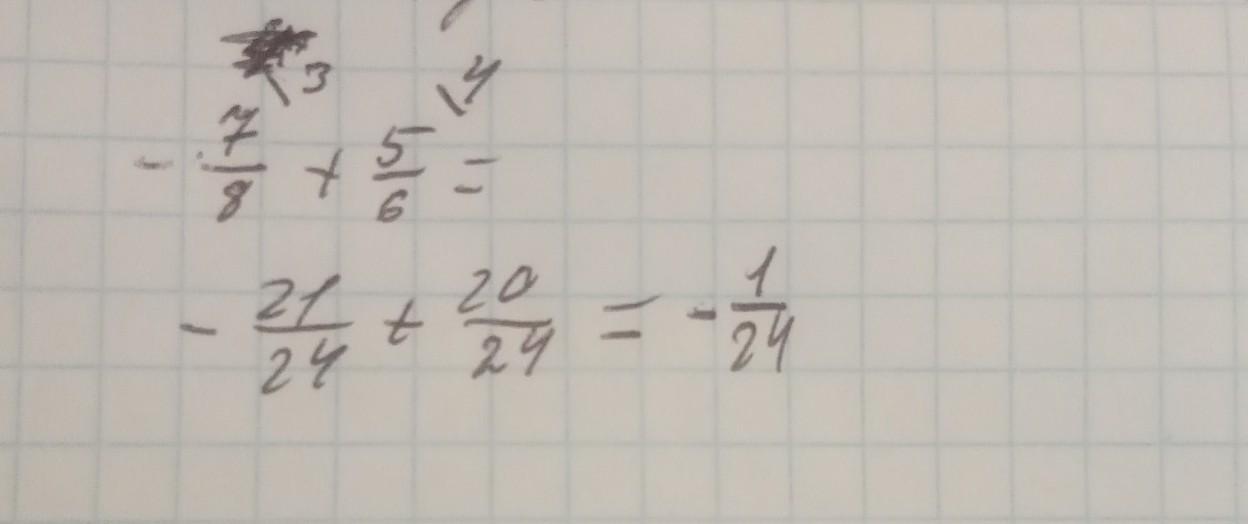 3 4
- 7/8 + 5/6 =
- 21/24 + 20/24 = - 1/24